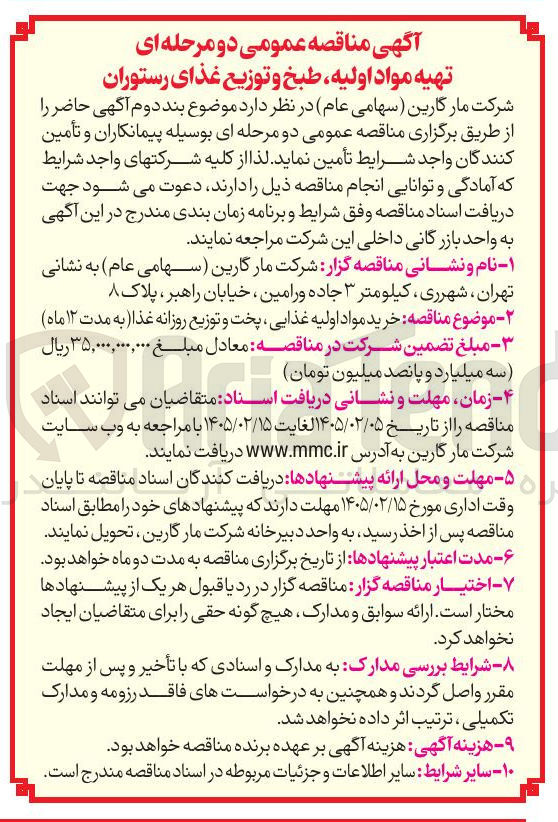 آگهی مناقصه عمومی دو مرحله ای
تهیه مواد اولیه، طبخ و توزیع غذای رستوران
شرکت مارگارین (سهامی عام) در نظر دارد موضوع بند دوم آگهی حاضر را
از طریق برگزاری مناقصه عمومی دو مرحله ای بوسیله پیمانکاران و تأمین
کنندگان واجد شرایط تأمین نماید. لذا از کلیه شرکتهای واجد شرایط
که آمادگی و توانایی انجام مناقصه ذیل را دارند، دعوت می شود جهت
دریافت اسناد مناقصه وفق شرایط و برنامه زمان بندی مندرج در این آگهی
به واحد بازرگانی داخلی این شرکت مراجعه نمایند.
۱-نام و نشانی مناقصه گزار: شرکت مارگارین (سهامی عام) به نشانی
تهران، شهرری، کیلومتر ۳ جاده ورامین، خیابان راهبر، پلاک ۸
۲-موضوع مناقصه: خرید مواد اولیه غذایی، پخت و توزیع روزانه غذا (به مدت ۱۲ ماه)
۳-مبلغ تضمین شرکت در مناقصه: معادل مبلغ ۳۵,۰۰۰,۰۰۰,۰۰۰ ریال
(سه میلیارد و پانصد میلیون تومان)
۴-زمان، مهلت و نشانی دریافت اسناد: متقاضیان می توانند اسناد
مناقصه را از تاریخ ۱۴۰۵/۰۲/۰۵ لغایت ۱۴۰۵/۰۲/۱۵ با مراجعه به وب سایت
شرکت مارگارین به آدرس www.mmc.ir دریافت نمایند.
۵-مهلت و محل ارائه پیشنهادها: دریافت کنندگان اسناد مناقصه تا پایان
وقت اداری مورخ ۱۴۰۵/۰۲/۱۵ مهلت دارند که پیشنهادهای خود را مطابق اسناد
مناقصه پس از اخذ رسید، به واحد دبیرخانه شرکت مارگارین، تحویل نمایند.
۶-مدت اعتبار پیشنهادها: از تاریخ برگزاری مناقصه به مدت دو ماه خواهد بود.
۷-اختیار مناقصه گزار: مناقصه گزار در رد یا قبول هر یک از پیشنهادها
مختار است. ارائه سوابق و مدارک، هیچ گونه حقی را برای متقاضیان ایجاد
نخواهد کرد.
۸-شرایط بررسی مدارک: به مدارک و اسنادی که با تأخیر و پس از مهلت
مقرر واصل گردند و همچنین به درخواست های فاقد رزومه و مدارک
تکمیلی، ترتیب اثر داده نخواهد شد.
۹-هزینه آگهی: هزینه آگهی بر عهده برنده مناقصه خواهد بود.
۱۰-سایر شرایط: سایر اطلاعات و جزئیات مربوطه در اسناد مناقصه مندرج است.